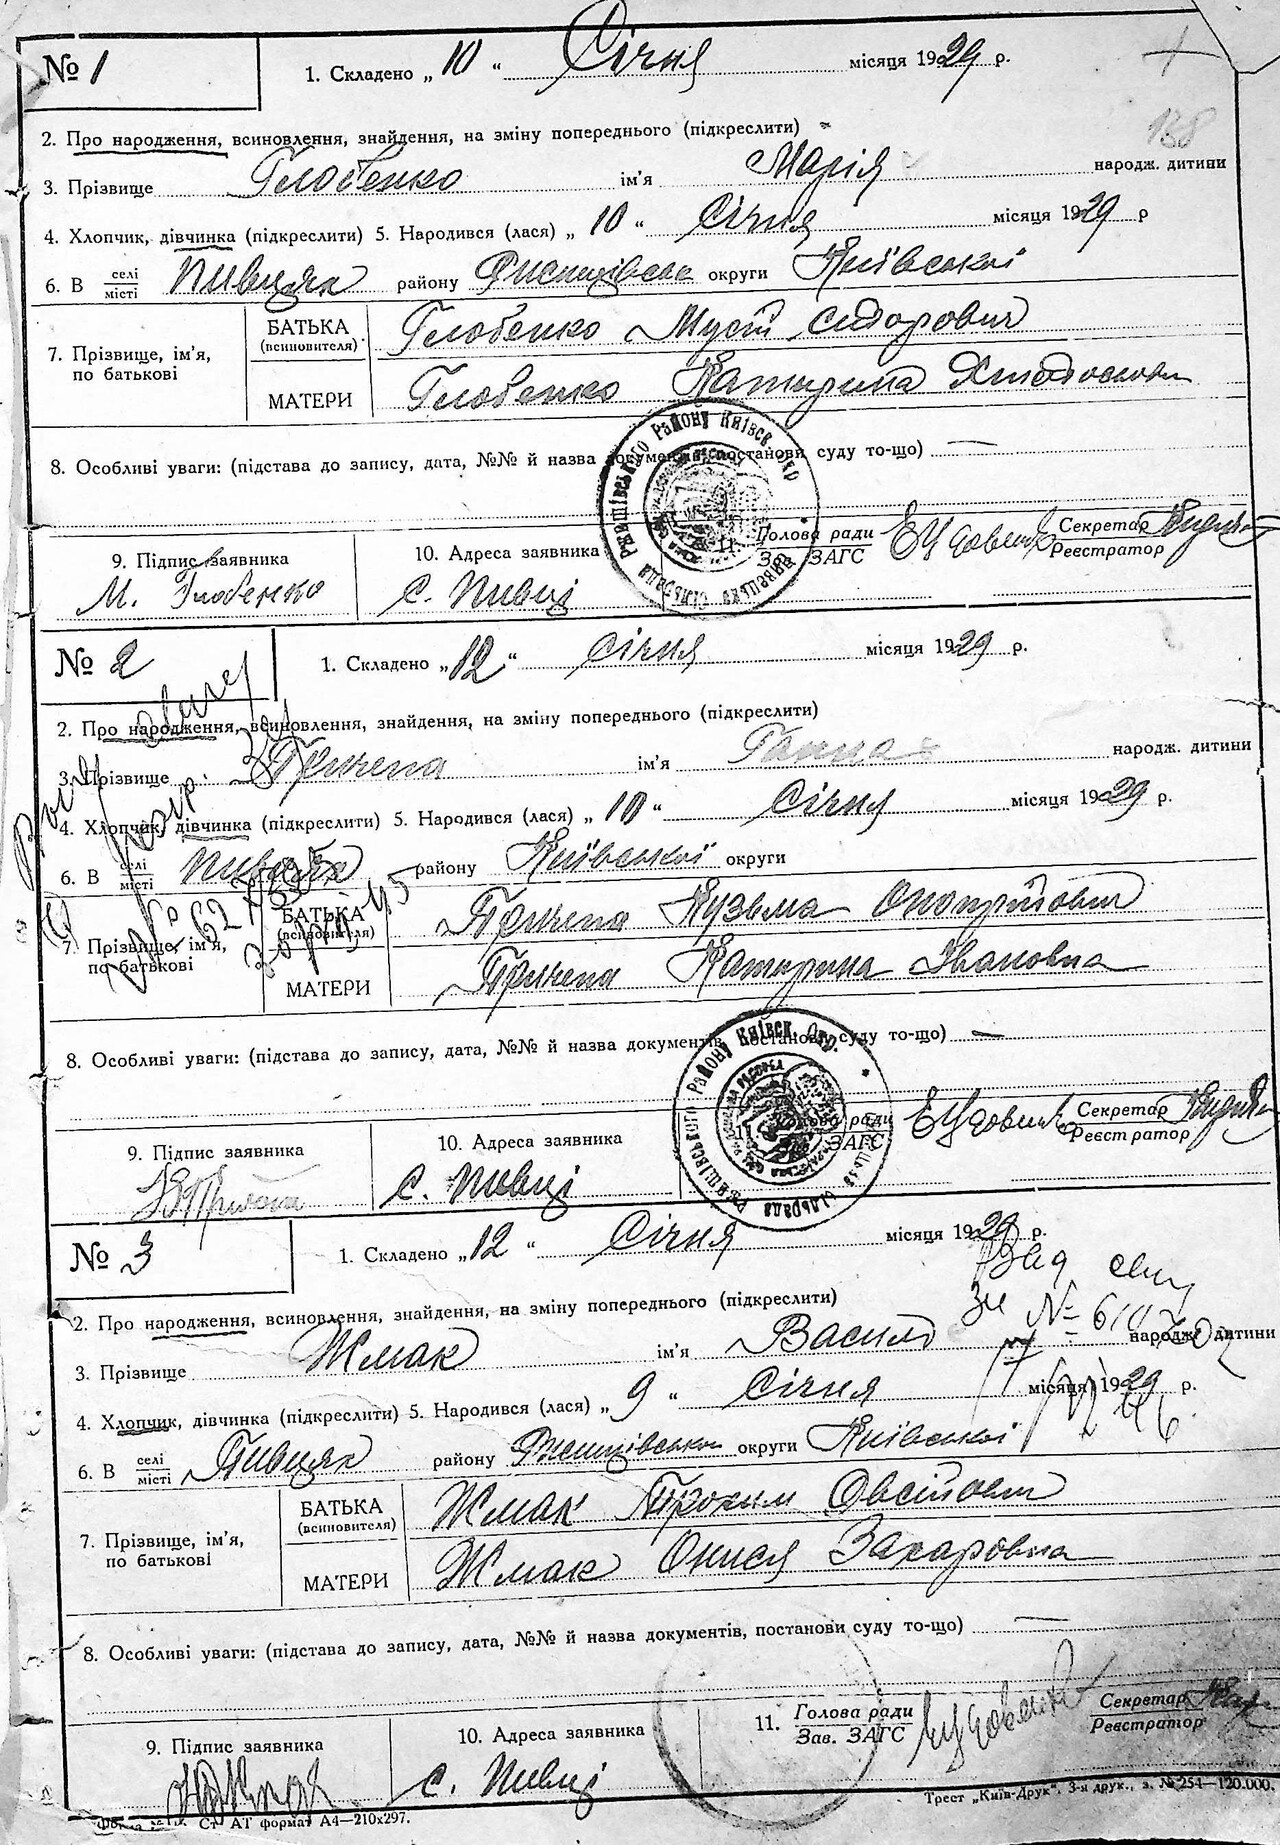 № 1
1. Складено „ 10 “ Січня місяця 1929 р.
138
2. Про народження, всиновлення, знайдення, на зміну попереднього (підкреслити)
3. Прізвище Глобенко ім'я Марія народж. дитини
4. Хлопчик, дівчинка (підкреслити) 5. Народився (лася) „ 10 “ Січня місяця 1929 р
6. В селі місті Пивцях району округи Київської
7. Прізвище, ім'я, по батькові
БАТЬКА (всиновителя). Глобенко Мусій Сидорович
МАТЕРИ Глобенко Катерина
8. Особливі уваги: (підстава до запису, дата, №№ й назва документів, постанови суду то-що) —
9. Підпис заявника 10. Адреса заявника 11. Голова ради Зав. ЗАГС Секретар Реєстратор
М. Глобенко с. Пивці
Ржищівського Району Київск. Окр. Пивецька Сільрада
№ 2
1. Складено „ 12 “ Січня місяця 1929 р.
2. Про народження, всиновлення, знайдення, на зміну попереднього (підкреслити)
3. Прізвище Причепа ім'я Ганна народж. дитини
4. Хлопчик, дівчинка (підкреслити) 5. Народився (лася) „ 10 “ Січня місяця 1929 р.
6. В селі місті Пивцях району Київської округи
7. Прізвище, ім'я, по батькові
БАТЬКА (всиновителя) Причепа Кузьма Онопрійович
МАТЕРИ Причепа Катерина Івановна
8. Особливі уваги: (підстава до запису, дата, №№ й назва документів, постанови суду то-що) —
9. Підпис заявника 10. Адреса заявника Голова ради ЗАГС Секретар Реєстратор
с. Пивці
Ржищівського Району Київск. Окр.
№ 3
1. Складено „ 12 “ Січня місяця 1929 р.
2. Про народження, всиновлення, знайдення, на зміну попереднього (підкреслити)
3. Прізвище Жмак ім'я Василь народж. дитини
4. Хлопчик, дівчинка (підкреслити) 5. Народився (лася) „ 9 “ Січня місяця 1929 р.
6. В селі місті Пивцях району Ржищівськ округи Київської
7. Прізвище, ім'я, по батькові
БАТЬКА (всиновителя) Жмак Трохим Овсійович
МАТЕРИ Жмак Онися Захаровна
8. Особливі уваги: (підстава до запису, дата, №№ й назва документів, постанови суду то-що) —
9. Підпис заявника 10. Адреса заявника 11. Голова ради Зав. ЗАГС Секретар Реєстратор
с. Пивці
Ст. АТ формат А4—210х297.
Трест „Київ-Друк“. 3-я друк., з. № 254—120.000.